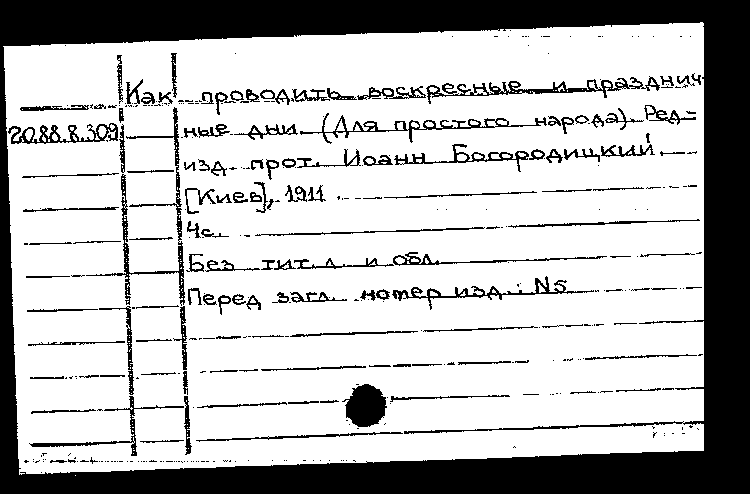 Как проводить воскресные и празднич-
20.88.8.309 ные дни. (Для простого народа). Ред-
изд. прот. Иоанн Богородицкий.
[Киев], 1911.
4с.
Без тит. л. и обл.
Перед загл. номер изд.: N5